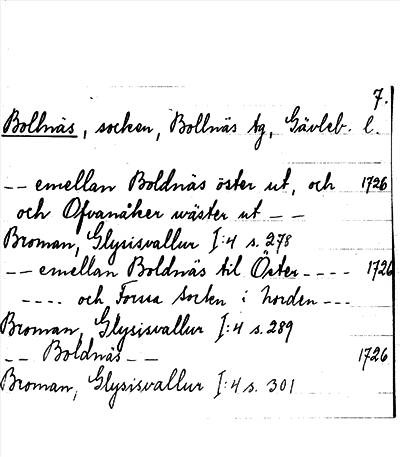 7.
Bollnäs, socken, Bollnäs tg, Gävleb. l.
-- emellan Boldnäs öster ut, och 1726
och Ofvanåker wäster ut --
Broman, Glysisvallur I:4 s. 278
-- emellan Boldnäs til Öster---- 1726
---- och Forssa Socken i norden ---
Broman, Glysisvallur I:4 s. 289
-- Boldnäs -- 1726
Broman, Glysisvallur I:4 s. 301